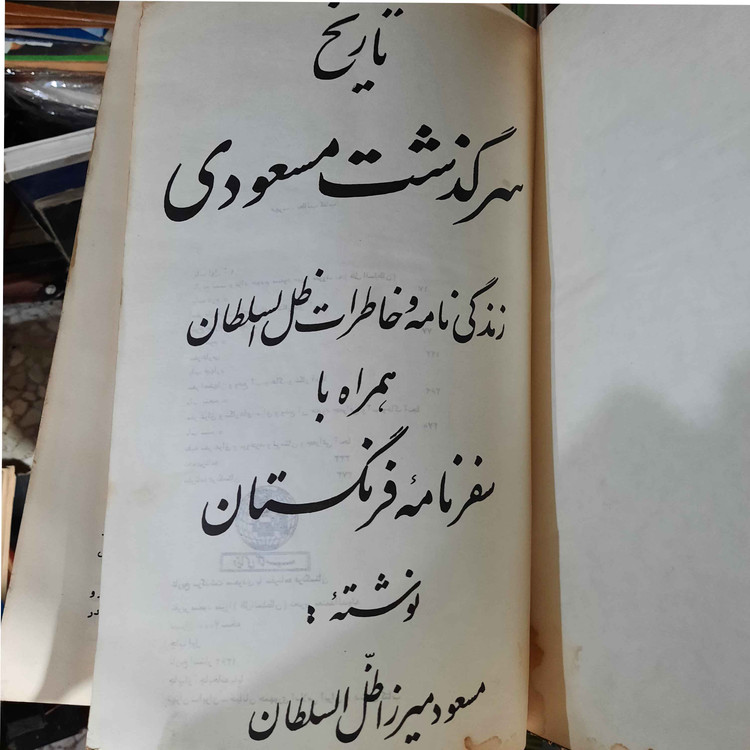 تاریخ
سرگذشت مسعودی
زندگی نامه و خاطرات ظل السلطان
همراه با
سفرنامهٔ فرنگستان
نوشتهٔ :
مسعود میرزا ظلّ السلطان